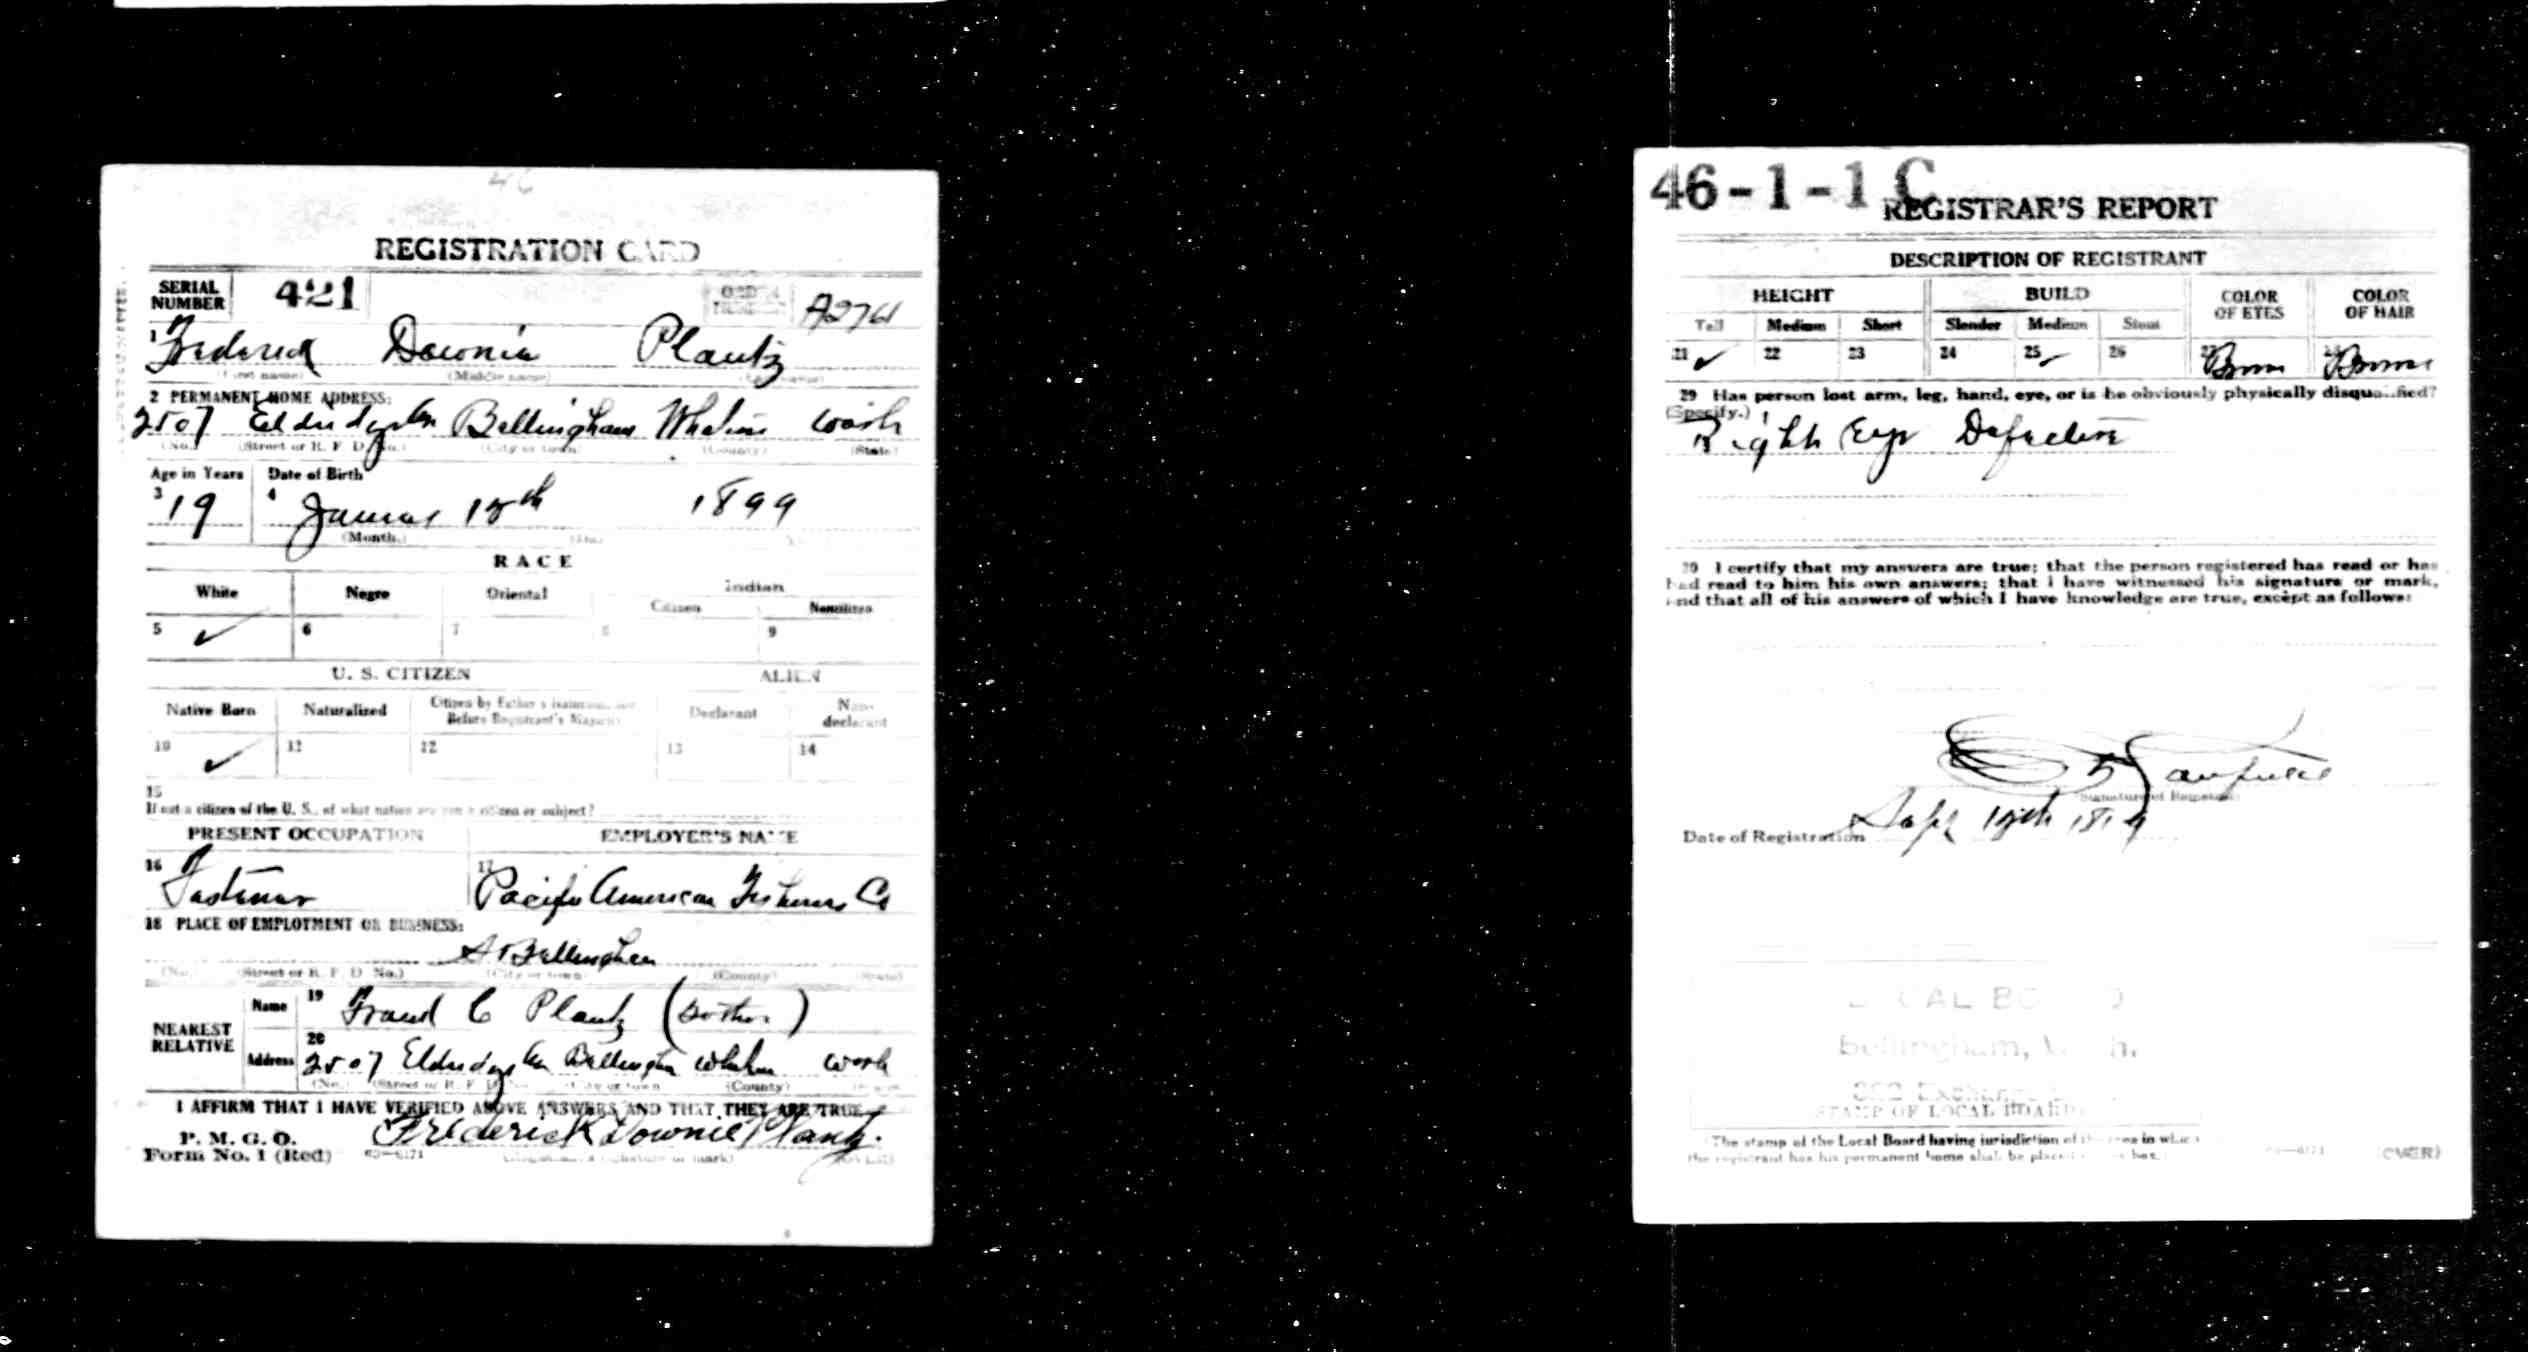 REGISTRATION CARD
SERIAL NUMBER 421 A2761
1 Frederick Downie Plantz
(First name) (Middle name)
2 PERMANENT HOME ADDRESS:
2507 Eldridge Av Bellingham Whatcom Wash
(No.) (Street or R. F. D. No.) (City or town) (County) (State)
Age in Years Date of Birth
3 19 4 January 15th 1899
(Month.)
RACE
White Negro Oriental Indian
Citizen Noncitizen
5 ✓ 6 7 8 9
U. S. CITIZEN ALIEN
Native Born Naturalized Citizen by Father's Naturalization Before Registrant's Majority Declarant Non-declarant
10 ✓ 11 12 13 14
15
If not a citizen of the U. S., of what nation are you a citizen or subject?
PRESENT OCCUPATION EMPLOYER'S NAME
16 17 Pacific American Fisheries Co
18 PLACE OF EMPLOYMENT OR BUSINESS:
S Bellingham
(No.) (Street or R. F. D. No.) (City or town) (County) (State)
NEAREST RELATIVE
Name 19 Plantz
Address 20 2507 Eldridge Av Bellingham Whatcom Wash
(No.) (Street or R. F. D. No.) (City or town) (County)
I AFFIRM THAT I HAVE VERIFIED ABOVE ANSWERS AND THAT THEY ARE TRUE
P. M. G. O.
Form No. 1 (Red) Frederick Downie Plantz.
(Registrant's signature or mark) (OVER)
46-1-1 C
REGISTRAR'S REPORT
DESCRIPTION OF REGISTRANT
HEIGHT BUILD COLOR OF EYES COLOR OF HAIR
Tall Medium Short Slender Medium Stout
21 ✓ 22 23 24 25 ✓ 26 27 Brown 28 Brown
29 Has person lost arm, leg, hand, eye, or is he obviously physically disqualified?
(Specify.) Right Eye Defective
30 I certify that my answers are true; that the person registered has read or has
had read to him his own answers; that I have witnessed his signature or mark,
and that all of his answers of which I have knowledge are true, except as follows:
(Signature of Registrar)
Date of Registration Sept 12th
LOCAL BOARD
Bellingham, Wash.
STAMP OF LOCAL BOARD
(The stamp of the Local Board having jurisdiction of the area in which
the registrant has his permanent home shall be placed in this box.)
(OVER)